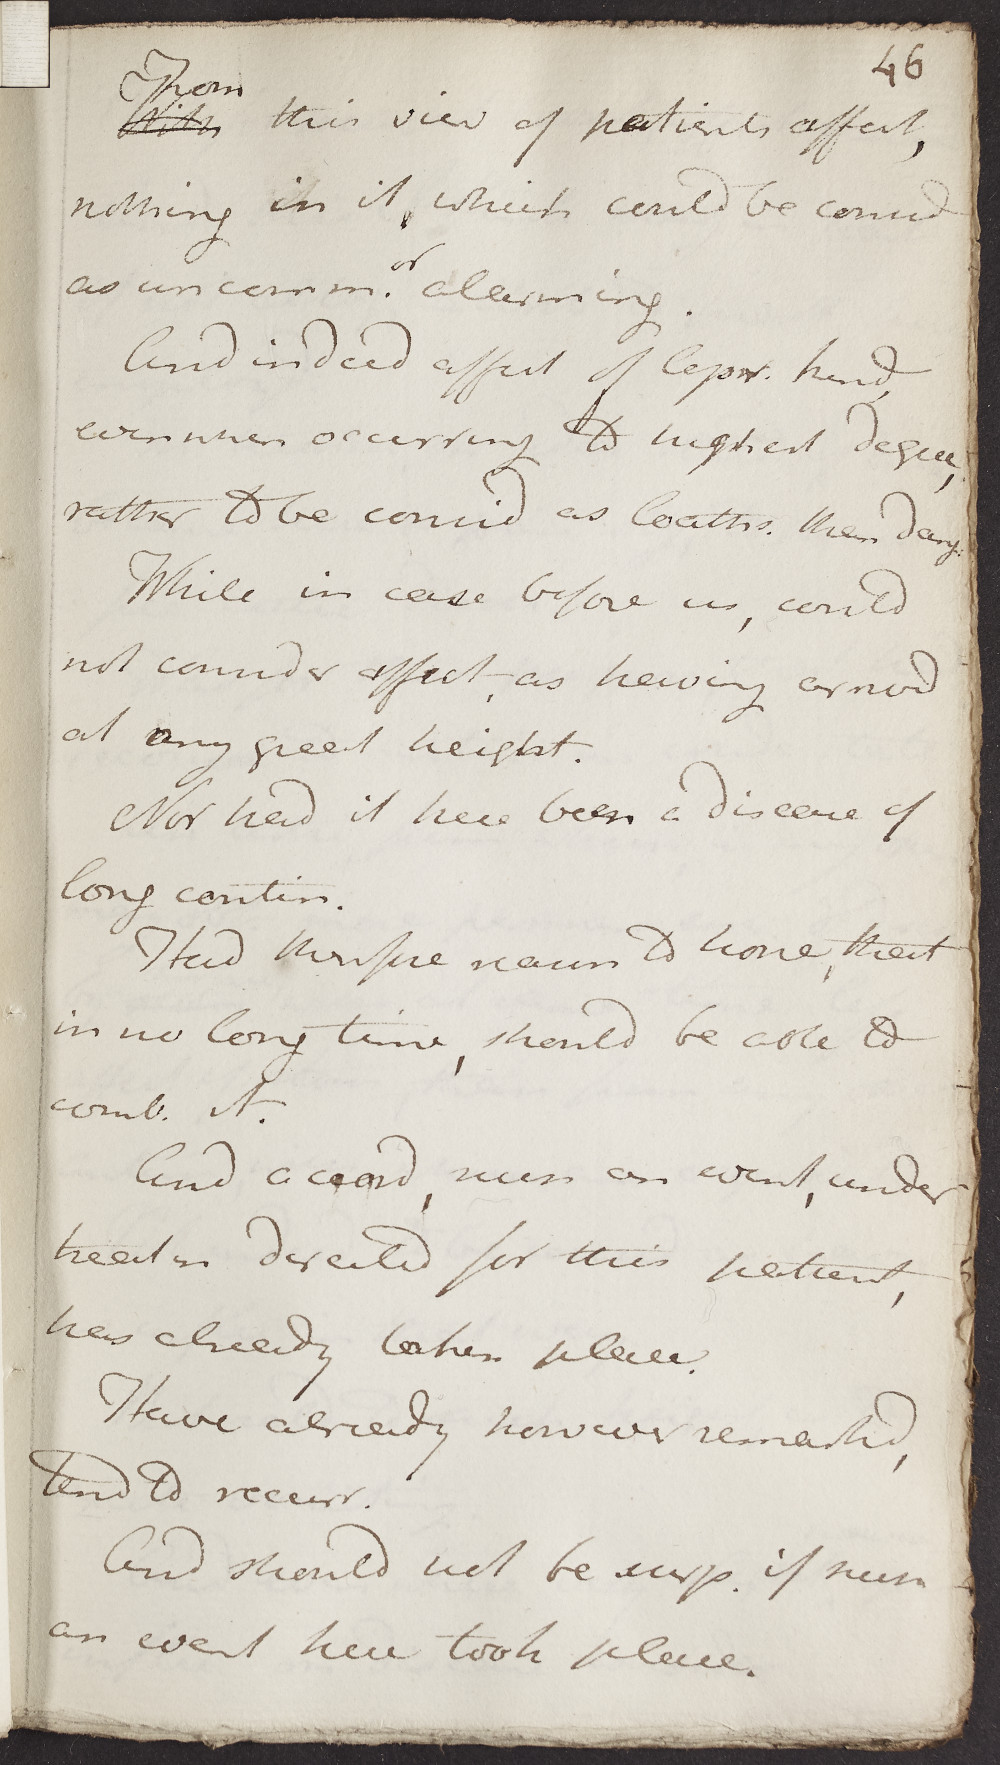 46
From
With this view of patients affect,
nothing in it, which could be consid
as uncomm. or alarming.
And indeed affect of lepr. kind,
even when occurring to highest degree,
rather to be consid as loaths. than dang.
While in case before us, could
not consider affect, as having arrived
at any great height.
Nor had it here been a disease of
long contin.
Had therefore reason to hope, that
in no long time, should be able to
comb. it.
And accord, such an event, under
treatm directed for this patient,
has already taken place.
Have already however remarked,
tend to recurr.
And should not be surp. if such
an event here took place.